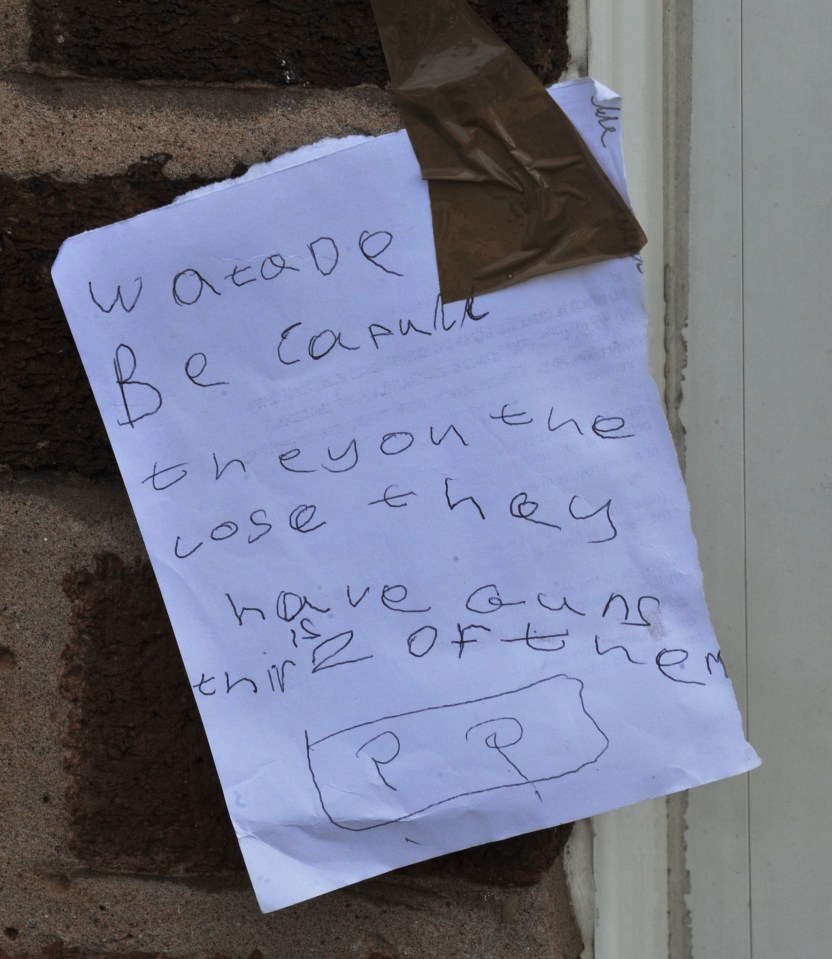 watade
Be Cafull
they on the
lose they
have guns
thir is 2 of them
P P